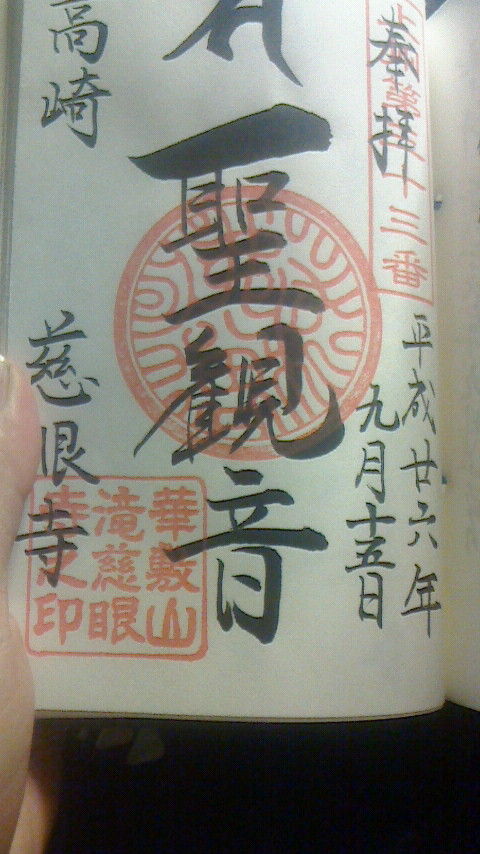 奉拝
十三番
平成廿六年
九月十五日
聖観音
高崎
慈眼寺
華敷山
滝慈眼
寺之印